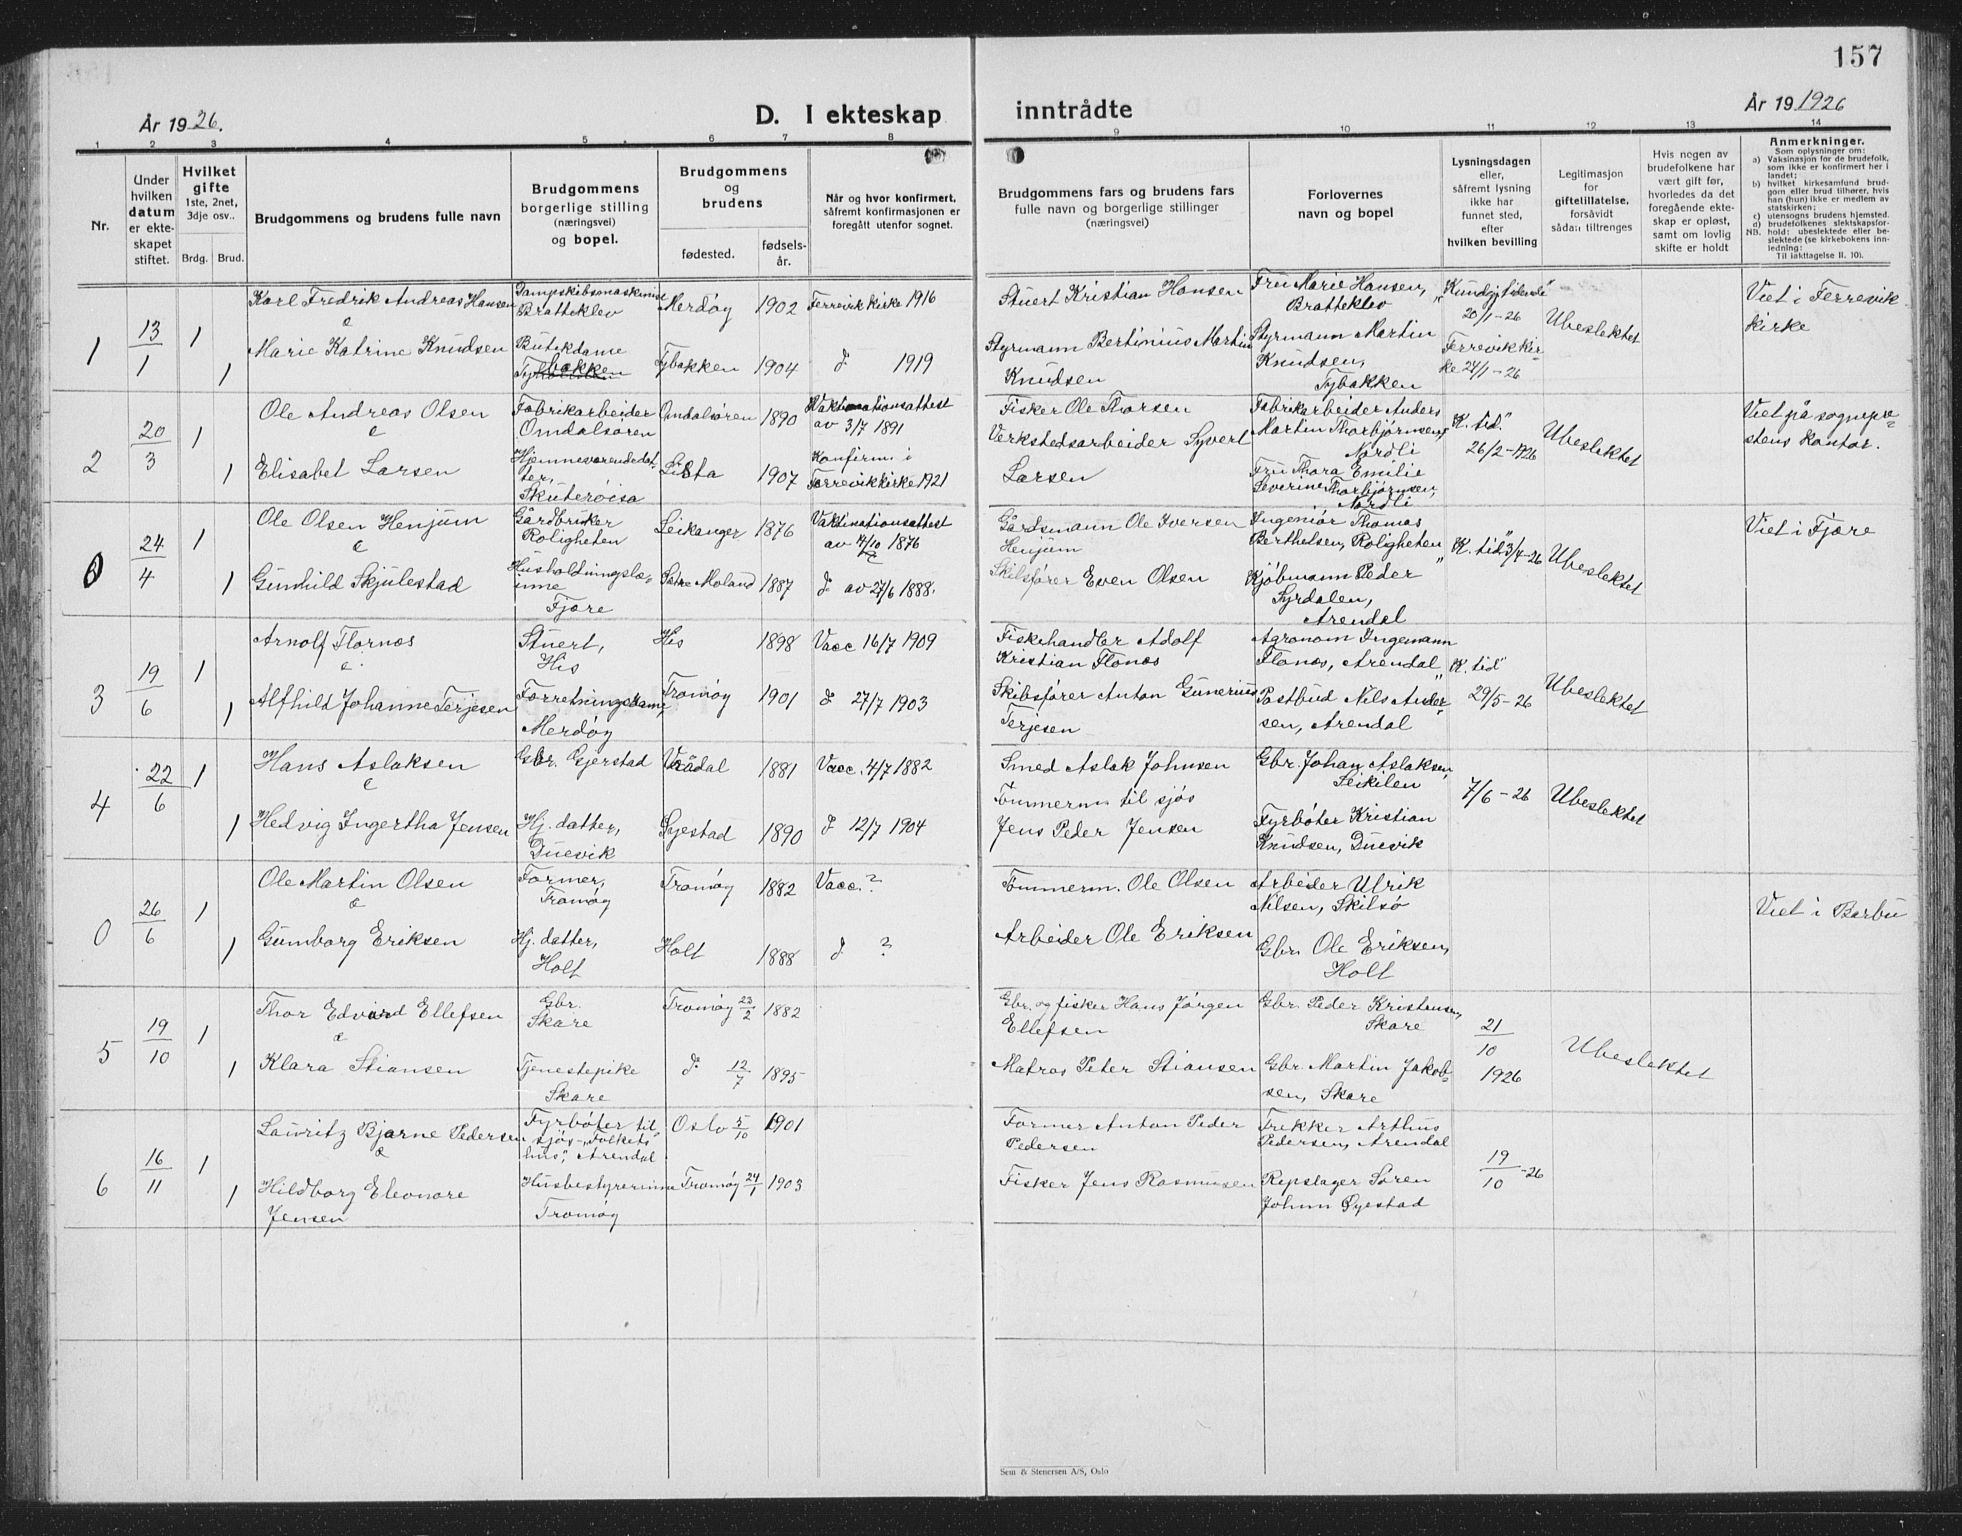 157
År 1926.
D. I ekteskap inntrådte
År 19 1926
1 2 3 4 5 6 7 8 9 10 11 12 13 14
Nr.
Under hvilken datum er ekte- skapet stiftet.
Hvilket gifte 1ste, 2net, 3dje osv..
Brdg. Brud.
Brudgommens og brudens fulle navn
Brudgommens borgerlige stilling (næringsvei) og bopel.
Brudgommens og brudens
fødested.
fødsels- år.
Når og hvor konfirmert, såfremt konfirmasjonen er foregått utenfor sognet.
Brudgommens fars og brudens fars fulle navn og borgerlige stillinger (næringsvei)
Forlovernes navn og bopel
Lysningsdagen eller, såfremt lysning ikke har funnet sted, efter hvilken bevilling
Legitimasjon for giftetillatelse, forsåvidt sådan tiltrenges
Hvis nogen av brudefolkene har vært gift før, hvorledes da det foregående ekte- skap er opløst, samt om lovlig skifte er holdt
Anmerkninger.
Som oplysninger om:
a) Vaksinasjon for de brudefolk, som ikke er konfirmert her i landet;
b) hvilket kirkesamfund brud- gom eller brud tilhører, hvis han (hun) ikke er medlem av statskirken;
c) utensogns brudens hjemsted.
d) brudefolkenes slektskapsfor- hold: ubeslektede eller be- slektede (se kirkebokens inn- ledning:
NB.
Til iakttagelse II. 10).
1
13/1
1
Karl Fredrik Andreas Hansen
&
Dampskibsmaskinist
Bratteklev
Merdøy 1902 Færvik kirke 1916
Stuert Kristian Hansen
Fru Marie Hansen,
Bratteklev
"Kundgj.tidende"
20/1-26
Ubeslektet
Viet i Færevik
kirke
1
Marie Katrine Knudsen
Butikdame
Tybakken
Tybakken 1904 do 1919
Styrmann Bertinius Martin
Knudsen
Styrmann Martin
Knudsen,
Tybakken
Færevik kir-
ke 24/1-26
2
20/3
1
Ole Andreas Olsen
&
Fabrikarbeider
Omdalsøren
Omdalsøren 1890 Vaktinationsattest
av 3/7 1891
Fisker Ole Thorsen
Fabrikarbeider Anders
Martin Thorbjørnsen,
Nordli
"K. tid."
26/2-1926
Ubeslektet
Viet på sognepre-
stens kontor.
1
Elisabet Larsen
Hjemmeværende dat-
ter,
Skuterøisa
Lista 1907 Konfirm i
Færevik kirke 1921
Verkstedsarbeider Syvert
Larsen
Fru Thora Emilie
Severine Thorbjørnsen,
Nordli
0
24/4
1
Ole Olsen Henjum
&
Gårdbruker
Roligheten
Leikanger 1876 Vaktinationsattest
av 14/10 1876
Gårdsmann Ole Iversen
Henjum
Ingeniør Thomas
Berthelsen, Roligheten
"K. tid" 3/4-26
Ubeslektet
Viet i Fjære
1
Gunhild Skjulestad
Husholdningslæ-
inne
Fjære
Østre Moland 1887 do av 27/6 1888.
Skibsfører Even Olsen
Kjøbmann Peder
Syrdalen,
Arendal
3
19/6
1
Arnolf Flornæs
&
Stuert,
His
His 1898 Vacc 16/7 1909
Fiskehandler Adolf
Kristian Flonæs
Agronom Ingemann
Flonæs, Arendal
"K. tid"
29/5-26
Ubeslektet
1
Alfhild Johanne Terjesen
Forretningsdame,
Merdøy
Tromøy 1901 do 27/7 1903
Skibsfører Anton Gunerius
Terjesen
Postbud Nils Ander-
sen, Arendal
4
22/6
1
Hans Aslaksen
&
Gbr. Gjerstad
Vrådal 1881 Vacc. 4/7 1882
Smed Aslak Johnsen
Gbr. Johan Aslaksen,
Seikilen
7/6-26
Ubeslektet
1
Hedvig Ingertha Jensen
Hj. datter,
Duevik
Øyestad 1890 do 12/7 1904
Tømmerm til sjøs
Jens Peder Jensen
Fyrbøter Kristian
Knudsen, Duevik
0
26/6
1
Ole Martin Olsen
&
Former,
Tromøy
Tromøy 1882 Vacc. ?
Tømmerm. Ole Olsen
Arbeider Ulrik
Nilsen, Skilsø
Viet i Barbu
1
Gumborg Eriksen
Hj. datter,
Holt
Holt 1888 do ?
Arbeider Ole Eriksen
Gbr. Ole Eriksen,
Holt
5
19/10
1
Thor Edvard Ellefsen
&
Gbr.
Skare
Tromøy 23/2 1882
Gbr. og fisker Hans Jørgen
Ellefsen
Gbr. Peder Kristensen,
Skare
21/10
1926
Ubeslektet
1
Klara Stiansen
Tjenestepike
Skare
do 12/7 1895
Matros Peter Stiansen
Gbr. Martin Jakob-
sen, Skare
6
16/11
1
Lauritz Bjarne Pedersen
&
Fyrbøter til
sjøs - "Folkets
hus", Arendal
Oslo 5/10 1901
Former Anton Peder
Pedersen
Trekker Arthur
Pedersen, Arendal
19/10-26
1
Hildborg Eleonore
Jensen
Husbestyrerinne
Tromøy
Tromøy 24/1 1903
Fisker Jens Rasmussen
Repslager Søren
Johnn Øyestad
Sem & Stenersen A/S, Oslo